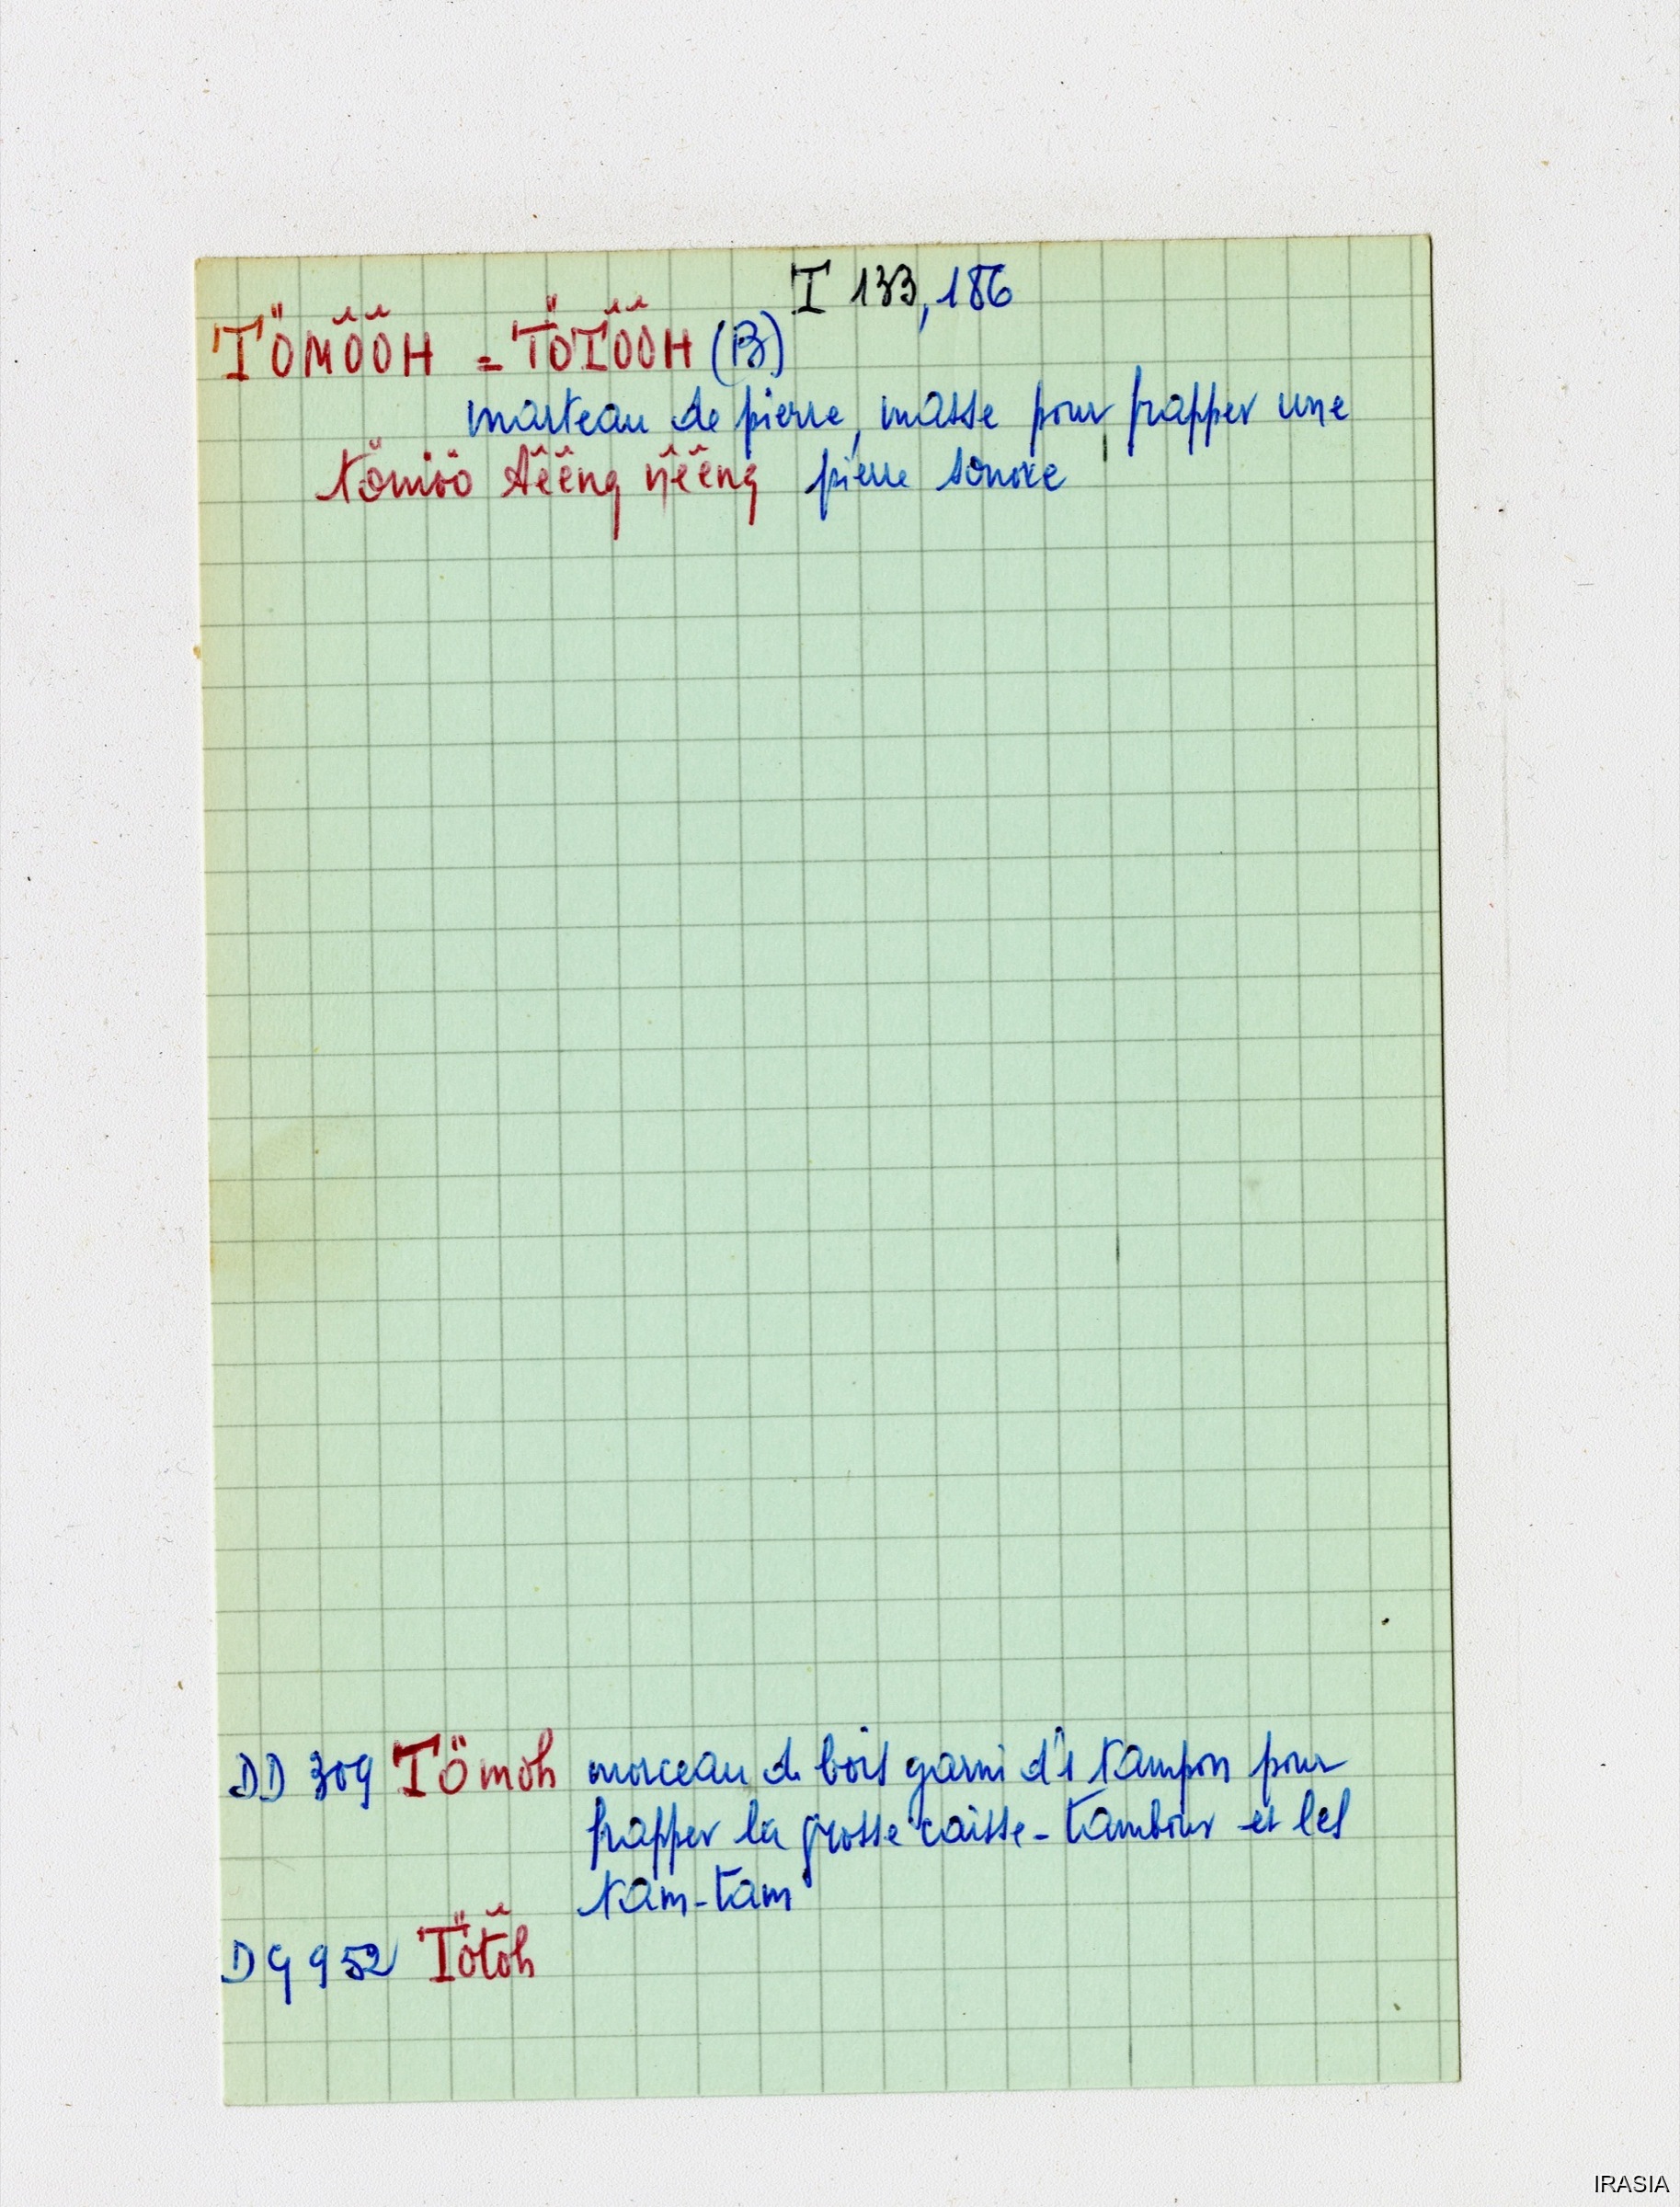 I 133, 186
TÖMỠỠH = TÖTỠỠH (B)
marteau de pierre, masse pour frapper une
tömöö têêng ñêêng pierre sonore
DD 309 Tömoh morceau de bois garni d'1 tampon pour
frapper la grosse caisse-tambour et les
tam-tam
DG 952 Tötõh
IRASIA